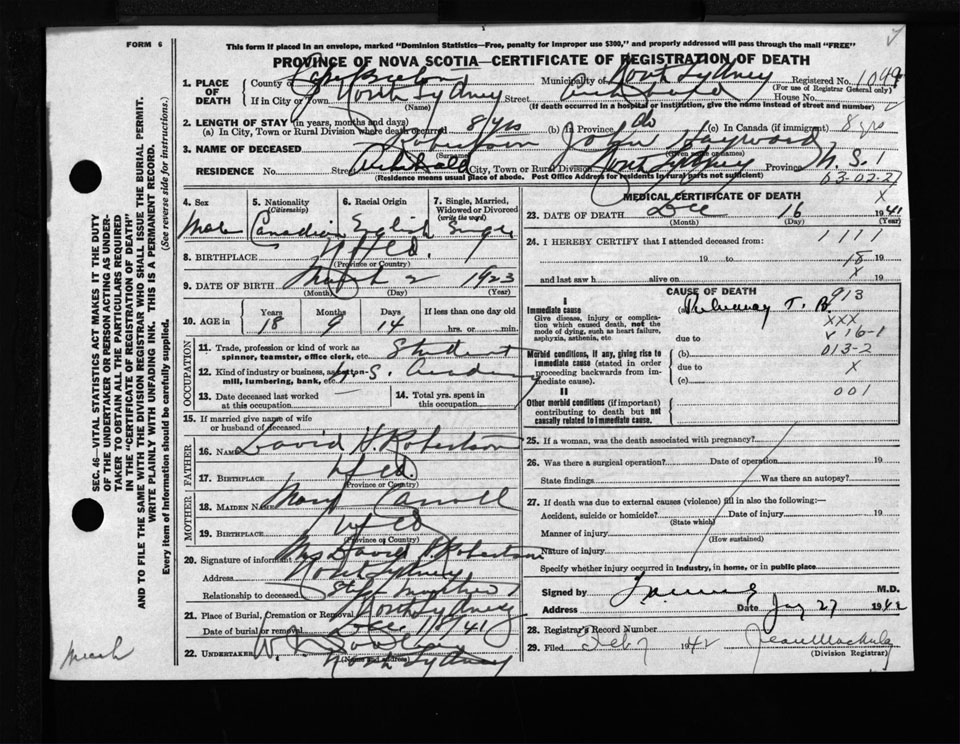 FORM 6
This form if placed in an envelope, marked "Dominion Statistics—Free, penalty for improper use $300," and properly addressed will pass through the mail "FREE"
PROVINCE OF NOVA SCOTIA—CERTIFICATE OF REGISTRATION OF DEATH
SEC. 46—VITAL STATISTICS ACT MAKES IT THE DUTY
OF THE UNDERTAKER OR PERSON ACTING AS UNDER-
TAKER TO OBTAIN ALL THE PARTICULARS REQUIRED
IN THE "CERTIFICATE OF REGISTRATION OF DEATH"
AND TO FILE THE SAME WITH THE DIVISION REGISTRAR WHO SHALL ISSUE THE BURIAL PERMIT.
WRITE PLAINLY WITH UNFADING INK. THIS IS A PERMANENT RECORD.
Every item of Information should be carefully supplied. (See reverse side for instructions.)
1. PLACE OF DEATH
County of Cape Breton Municipality of North Sydney Registered No. 1099
(For use of Registrar General only)
If in City or Town North Sydney Street Archibald House No.
(Name) (If death occurred in a hospital or institution, give the name instead of street and number)
2. LENGTH OF STAY (in years, months and days)
(a) In City, Town or Rural Division where death occurred 8 yrs (b) In Province do (c) In Canada (if immigrant) 8 yrs
3. NAME OF DECEASED Robertson John Haywood
(Surname) (Given name or names)
RESIDENCE No. Street Archibald City, Town or Rural Division North Sydney Province N. S. 1
(Residence means usual place of abode. Post Office Address for residents in rural parts not sufficient) 63-02-27
4. Sex
Male
5. Nationality (Citizenship)
Canadian
6. Racial Origin
English
7. Single, Married, Widowed or Divorced (write the word)
Single
8. BIRTHPLACE Nfld.
(Province or Country)
9. DATE OF BIRTH March 2 1923
(Month) (Day) (Year)
10. AGE in
Years Months Days If less than one day old
18 9 14 hrs. or min.
OCCUPATION
11. Trade, profession or kind of work as spinner, teamster, office clerk, etc. Student
12. Kind of industry or business, as cotton-mill, lumbering, bank, etc. N.S. Academy
13. Date deceased last worked at this occupation
14. Total yrs. spent in this occupation
15. If married give name of wife or husband of deceased
FATHER
16. NAME David H. Robertson
17. BIRTHPLACE Nfld
(Province or Country)
MOTHER
18. MAIDEN NAME Mary
19. BIRTHPLACE Nfld
(Province or Country)
20. Signature of informant Mrs David Robertson
Address North Sydney
Relationship to deceased Step mother
21. Place of Burial, Cremation or Removal North Sydney
Date of burial or removal Dec 18/41
22. UNDERTAKER W.
North Sydney
(Name and address)
MEDICAL CERTIFICATE OF DEATH
X
23. DATE OF DEATH Dec 16 1941
(Month) (Day) (Year)
24. I HEREBY CERTIFY that I attended deceased from: 1111
19 to 18 19
and last saw h alive on X 19
CAUSE OF DEATH
913
I
Immediate cause
Give disease, injury or complication which caused death, not the mode of dying, such as heart failure, asphyxia, asthenia, etc
(a) Pulmonary T. B.
XXX
due to 16-1
Morbid conditions, if any, giving rise to immediate cause (stated in order proceeding backwards from immediate cause).
(b) 013-2
due to X
(c)
II
Other morbid conditions (if important) contributing to death but not causally related to immediate cause.
001
25. If a woman, was the death associated with pregnancy?
26. Was there a surgical operation? Date of operation 19
State findings Was there an autopsy?
27. If death was due to external causes (violence) fill in also the following:—
Accident, suicide or homicide? Date of injury 19
(State which)
Manner of injury
(How sustained)
Nature of injury
Specify whether injury occurred in industry, in home, or in public place
Signed by M.D.
Address Date Jan 27 1942
28. Registrar's Record Number
29. Filed Feb 7 1942
(Division Registrar)